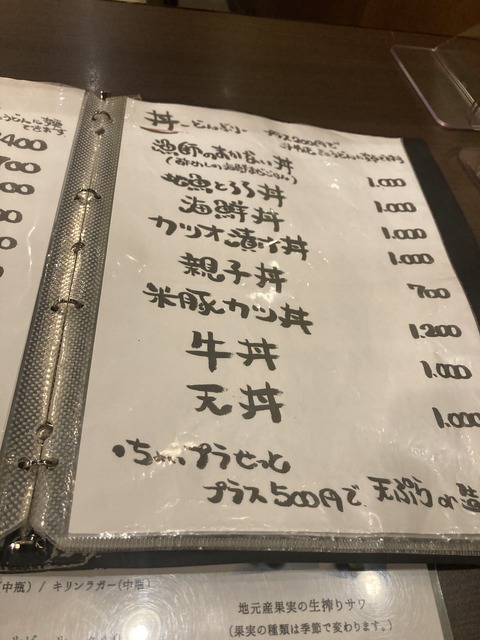 うどんに変更
できます
400
700
丼～どんぶり～ プラス200円で
漁師のまかない丼 1.000
地魚とろろ丼 1.000
海鮮丼 1.000
カツオ漬け丼 1.000
親子丼 700
米豚カツ丼 1.200
牛丼 1.000
天丼 1.000
・ちょいプラせっと
プラス500円で 天ぷら or 造
中瓶) / キリンラガー(中瓶)
地元産果実の生搾りサワ
(果実の種類は季節で変わります。)